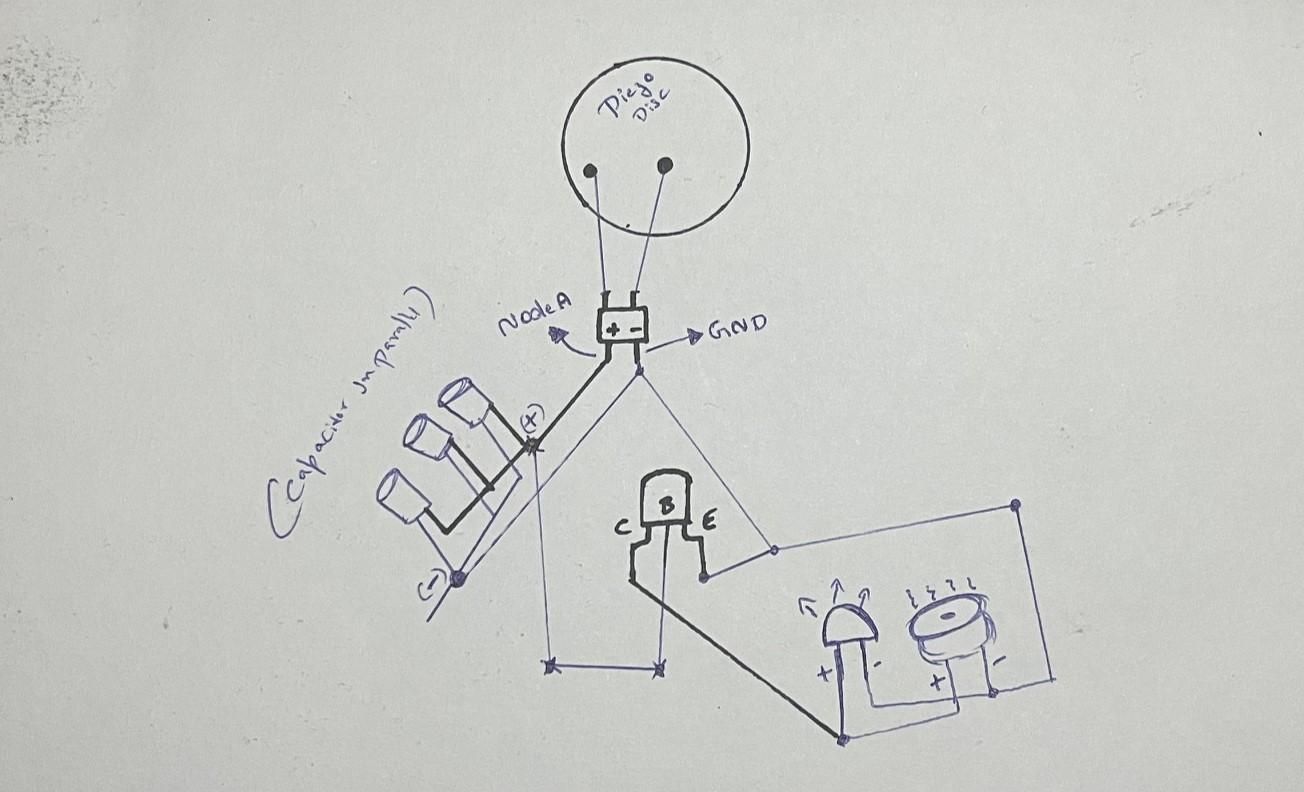 Diezo
Disc
Node A
+ -
GND
(Capacitor In Parall)
(+)
B
C
E
(-)
+
-
+
-